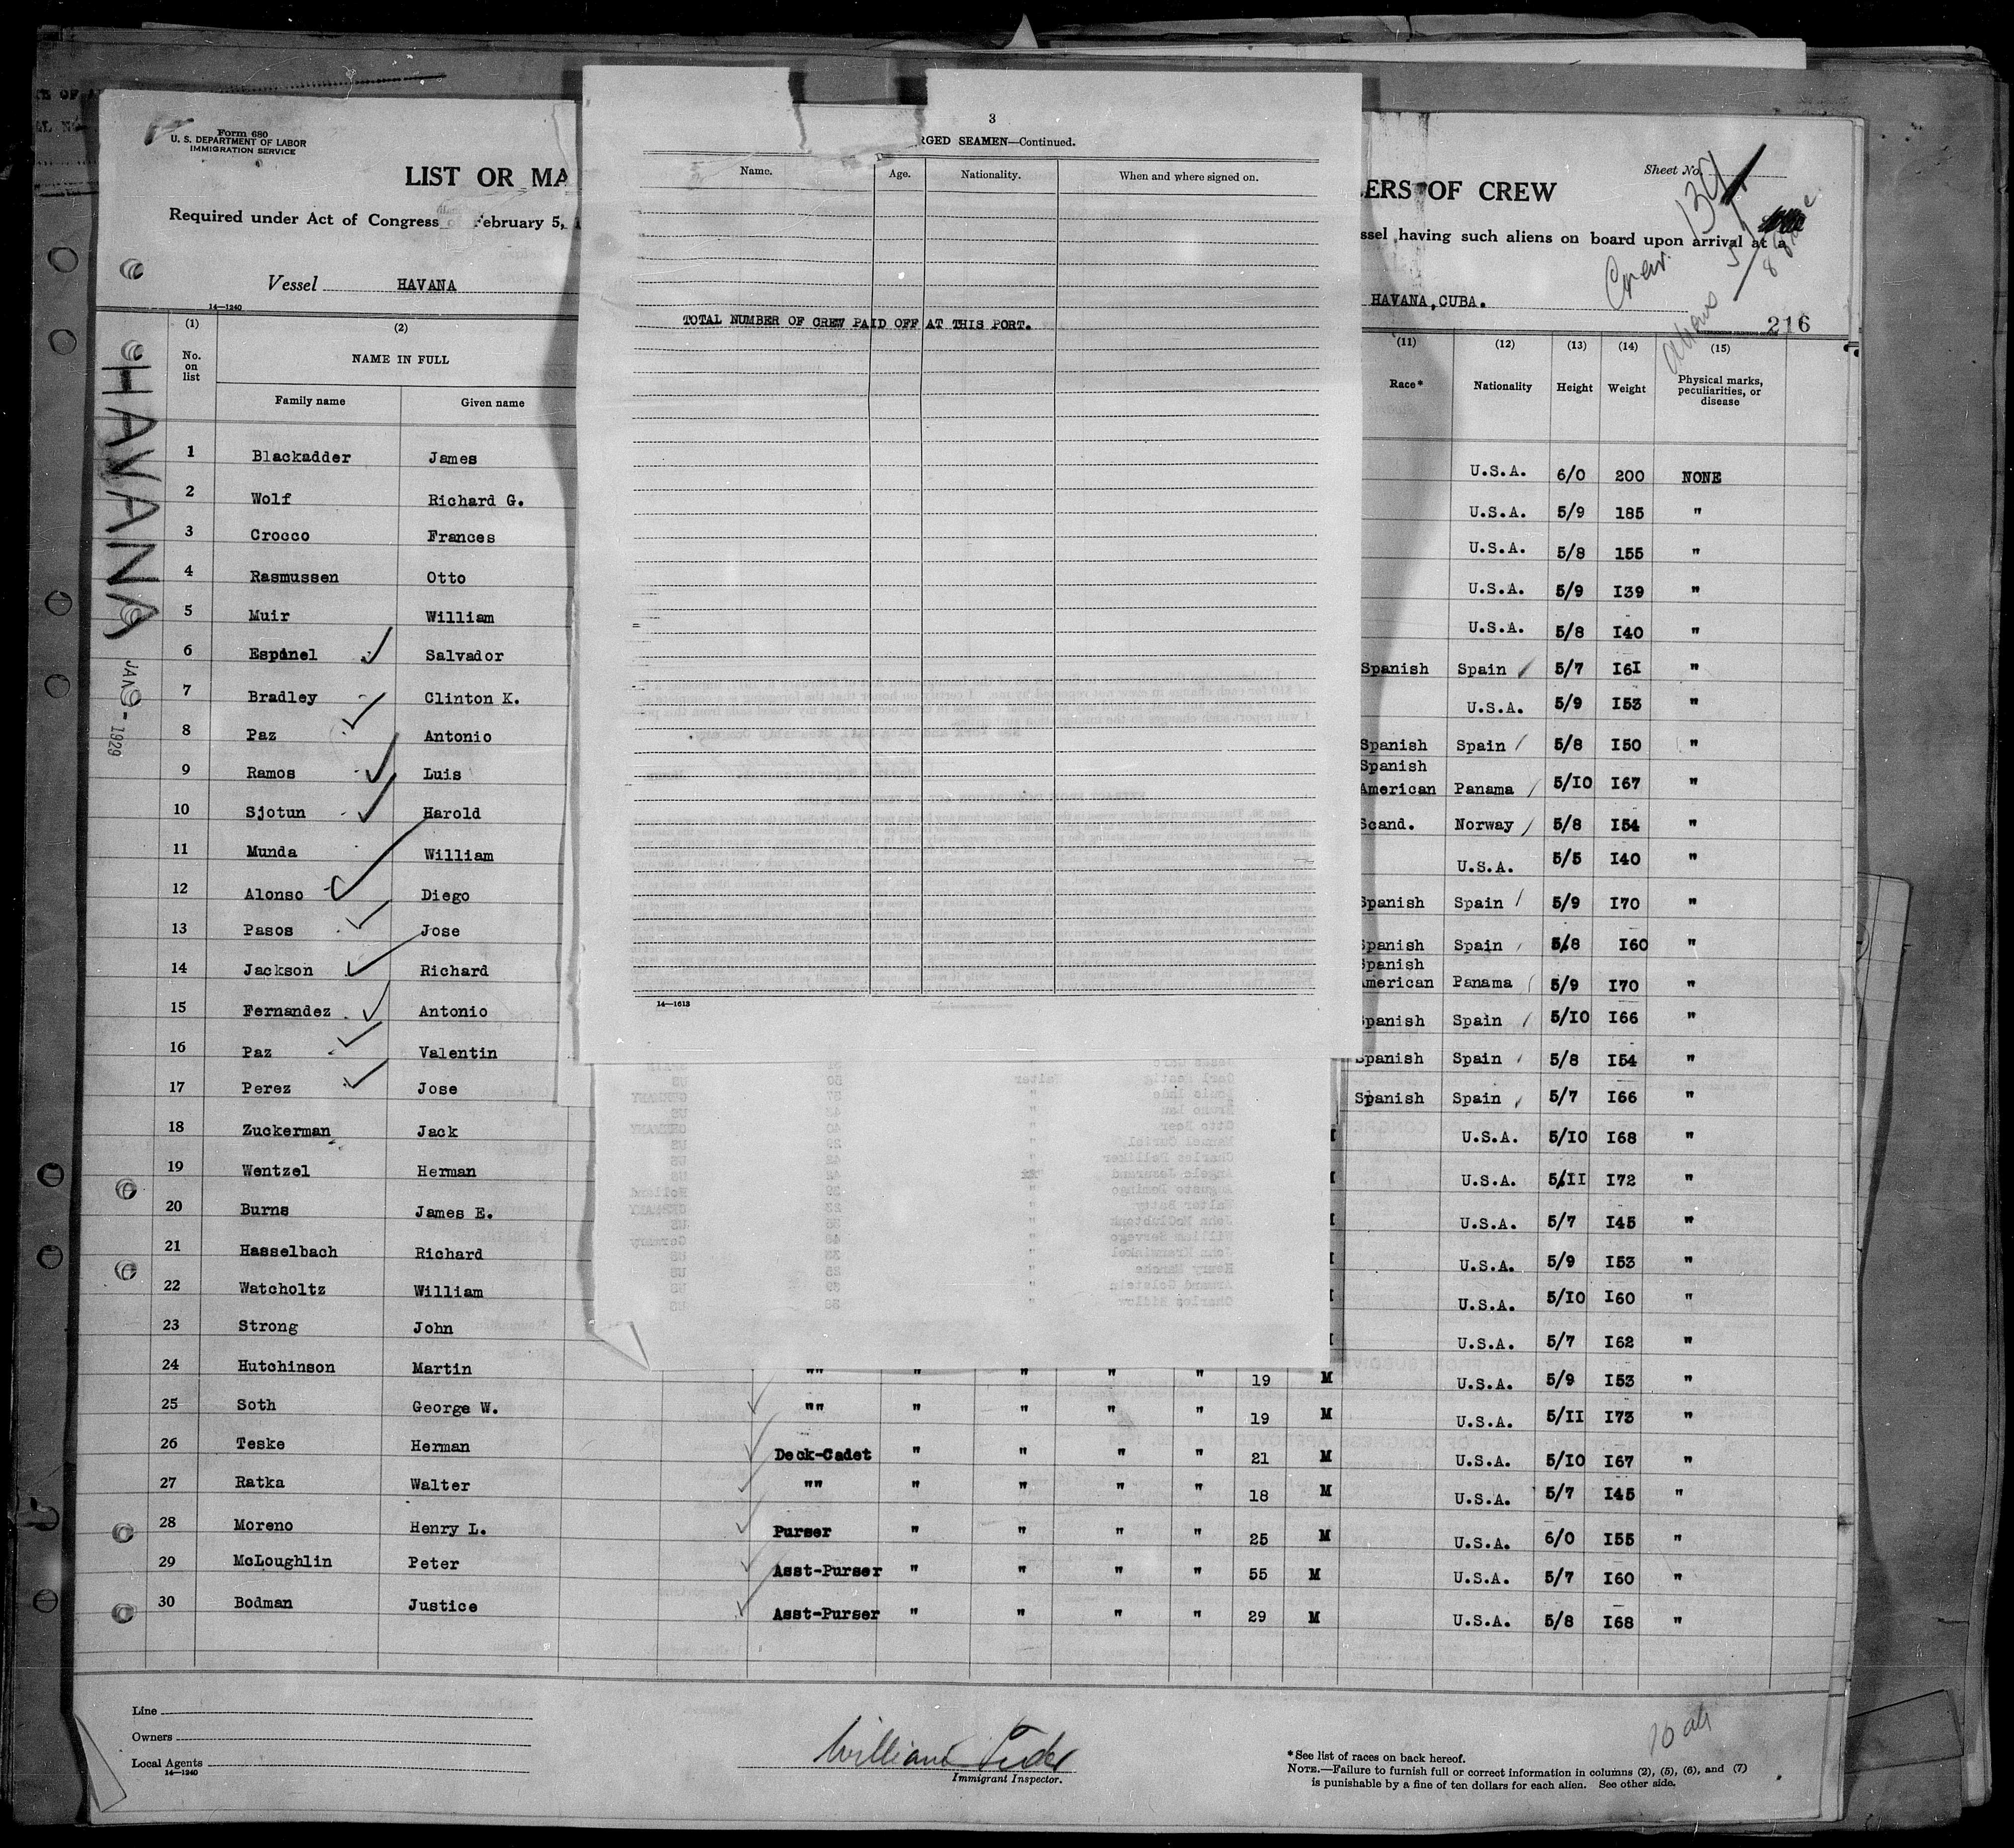 Form 680
U. S. DEPARTMENT OF LABOR
IMMIGRATION SERVICE
LIST OR MA
Required under Act of Congress of February 5,
Vessel HAVANA
14—1240
3
RGED SEAMEN—Continued.
Name. Age. Nationality. When and where signed on.
TOTAL NUMBER OF CREW PAID OFF AT THIS PORT.
14—1613
ERS OF CREW
Sheet No.
ssel having such aliens on board upon arrival at a
HAVANA, CUBA.
Crew 
Aliens
216
HAVANA
JAN 9 - 1929
(1) (2) (11) (12) (13) (14) (15)
No. on list NAME IN FULL Race* Nationality Height Weight Physical marks, peculiarities, or disease
Family name Given name
1 Blackadder James U.S.A. 6/0 200 NONE
2 Wolf Richard G. U.S.A. 5/9 185 "
3 Crocco Frances U.S.A. 5/8 155 "
4 Rasmussen Otto U.S.A. 5/9 I39 "
5 Muir William U.S.A. 5/8 I40 "
6 Espinel Salvador Spanish Spain 5/7 I6I "
7 Bradley Clinton K. U.S.A. 5/9 I53 "
8 Paz Antonio Spanish Spain 5/8 I50 "
9 Ramos Luis Spanish American Panama 5/IO I67 "
10 Sjotun Harold Scand. Norway 5/8 I54 "
11 Munda William U.S.A. 5/5 I40 "
12 Alonso Diego Spanish Spain 5/9 I70 "
13 Pasos Jose Spanish Spain 5/8 I60 "
14 Jackson Richard Spanish American Panama 5/9 I70 "
15 Fernandez Antonio Spanish Spain 5/IO I66 "
16 Paz Valentin Spanish Spain 5/8 I54 "
17 Perez Jose Spanish Spain 5/7 I66 "
18 Zuckerman Jack U.S.A. 5/IO I68 "
19 Wentzel Herman U.S.A. 5/II I72 "
20 Burns James E. U.S.A. 5/7 I45 "
21 Hasselbach Richard U.S.A. 5/9 I53 "
22 Watcholtz William U.S.A. 5/IO I60 "
23 Strong John U.S.A. 5/7 I62 "
24 Hutchinson Martin "" " " " " 19 M U.S.A. 5/9 I53 "
25 Soth George W. "" " " " " 19 M U.S.A. 5/II I73 "
26 Teske Herman Deck-Cadet " " " " 21 M U.S.A. 5/IO I67 "
27 Ratka Walter "" " " " " 18 M U.S.A. 5/7 I45 "
28 Moreno Henry L. Purser " " " " 25 M U.S.A. 6/0 I55 "
29 McLoughlin Peter Asst-Purser " " " " 55 M U.S.A. 5/7 I60 "
30 Bodman Justice Asst-Purser " " " " 29 M U.S.A. 5/8 I68 "
Line
Owners
Local Agents
14—1240
William
Immigrant Inspector.
*See list of races on back hereof.
NOTE.—Failure to furnish full or correct information in columns (2), (5), (6), and (7)
is punishable by a fine of ten dollars for each alien. See other side.